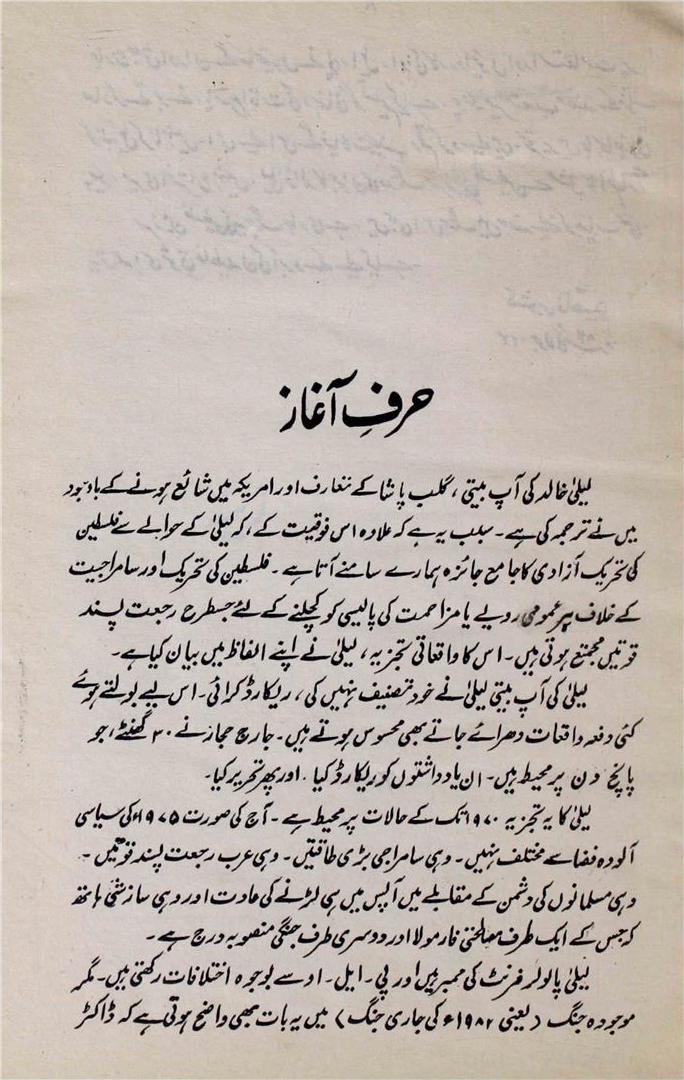 حرفِ آغاز
لیلیٰ خالد کی آپ بیتی، گلب پاشا کے تعارف اور امریکہ میں شائع ہونے کے باوجود
میں نے ترجمہ کی ہے۔ سبب یہ ہے کہ علاوہ اس فوقیت کے، کہ لیلیٰ کے حوالے سے فلسطین
کی تحریک آزادی کا جامع جائزہ ہمارے سامنے آتا ہے۔ فلسطین کی تحریک اور سامراجیت
کے خلاف ہر عمومی رویے یا مزاحمت کی پالیسی کو کچلنے کے لئے جسطرح رجعت پسند
قوتیں مجتمع ہوتی ہیں۔ اس کا واقعاتی تجزیہ، لیلیٰ نے اپنے الفاظ میں بیان کیا ہے۔
لیلیٰ کی آپ بیتی لیلیٰ نے خود تصنیف نہیں کی، ریکارڈ کرائی۔ اس لیے بولتے ہوئے
کئی دفعہ واقعات دھرائے جاتے بھی محسوس ہوتے ہیں۔ جارج حجاز نے ۳۰ گھنٹے، جو
پانچ دن پر محیط ہیں۔ ان یادداشتوں کو ریکارڈ کیا۔ اور پھر تحریر کیا۔
لیلیٰ کا یہ تجزیہ ۱۹۷۰ تک کے حالات پر محیط ہے۔ آج کی صورت ۱۹۷۵ء کی سیاسی
آلودہ فضا سے مختلف نہیں۔ وہی سامراجی بڑی طاقتیں۔ وہی عرب رجعت پسند قوتیں۔
وہی مسلمانوں کی دشمن کے مقابلے میں آپس میں ہی لڑنے کی عادت اور وہی سازشی ہاتھ
کہ جس کے ایک طرف مصالحتی فارمولا اور دوسری طرف جنگی منصوبہ درج ہے۔
لیلیٰ پاپولر فرنٹ کی ممبر ہیں اور پی۔ ایل۔ او سے بوجوہ اختلافات رکھتی ہیں۔ مگر
موجودہ جنگ (یعنی ۱۹۸۲ء کی جاری جنگ) میں یہ بات بھی واضح ہوتی ہے کہ ڈاکٹر